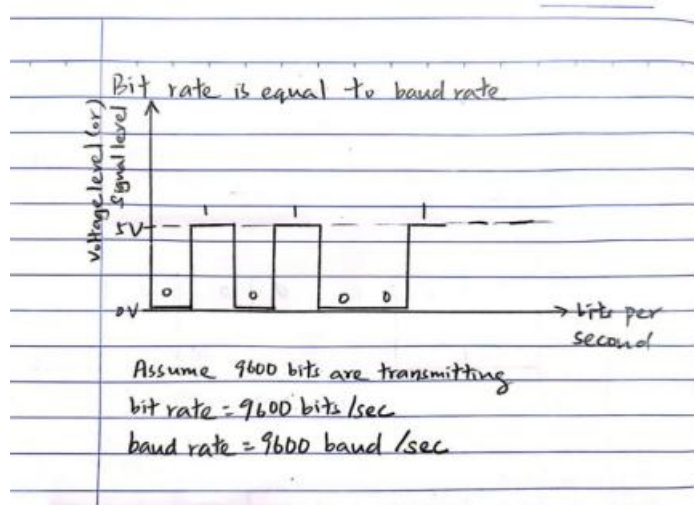 Bit rate is equal to baud rate
Voltage level (or)
Signal level
5V
1 1 1
0 0 0 0
0V
bits per
second
Assume 9600 bits are transmitting
bit rate = 9600 bits/sec
baud rate = 9600 baud /sec